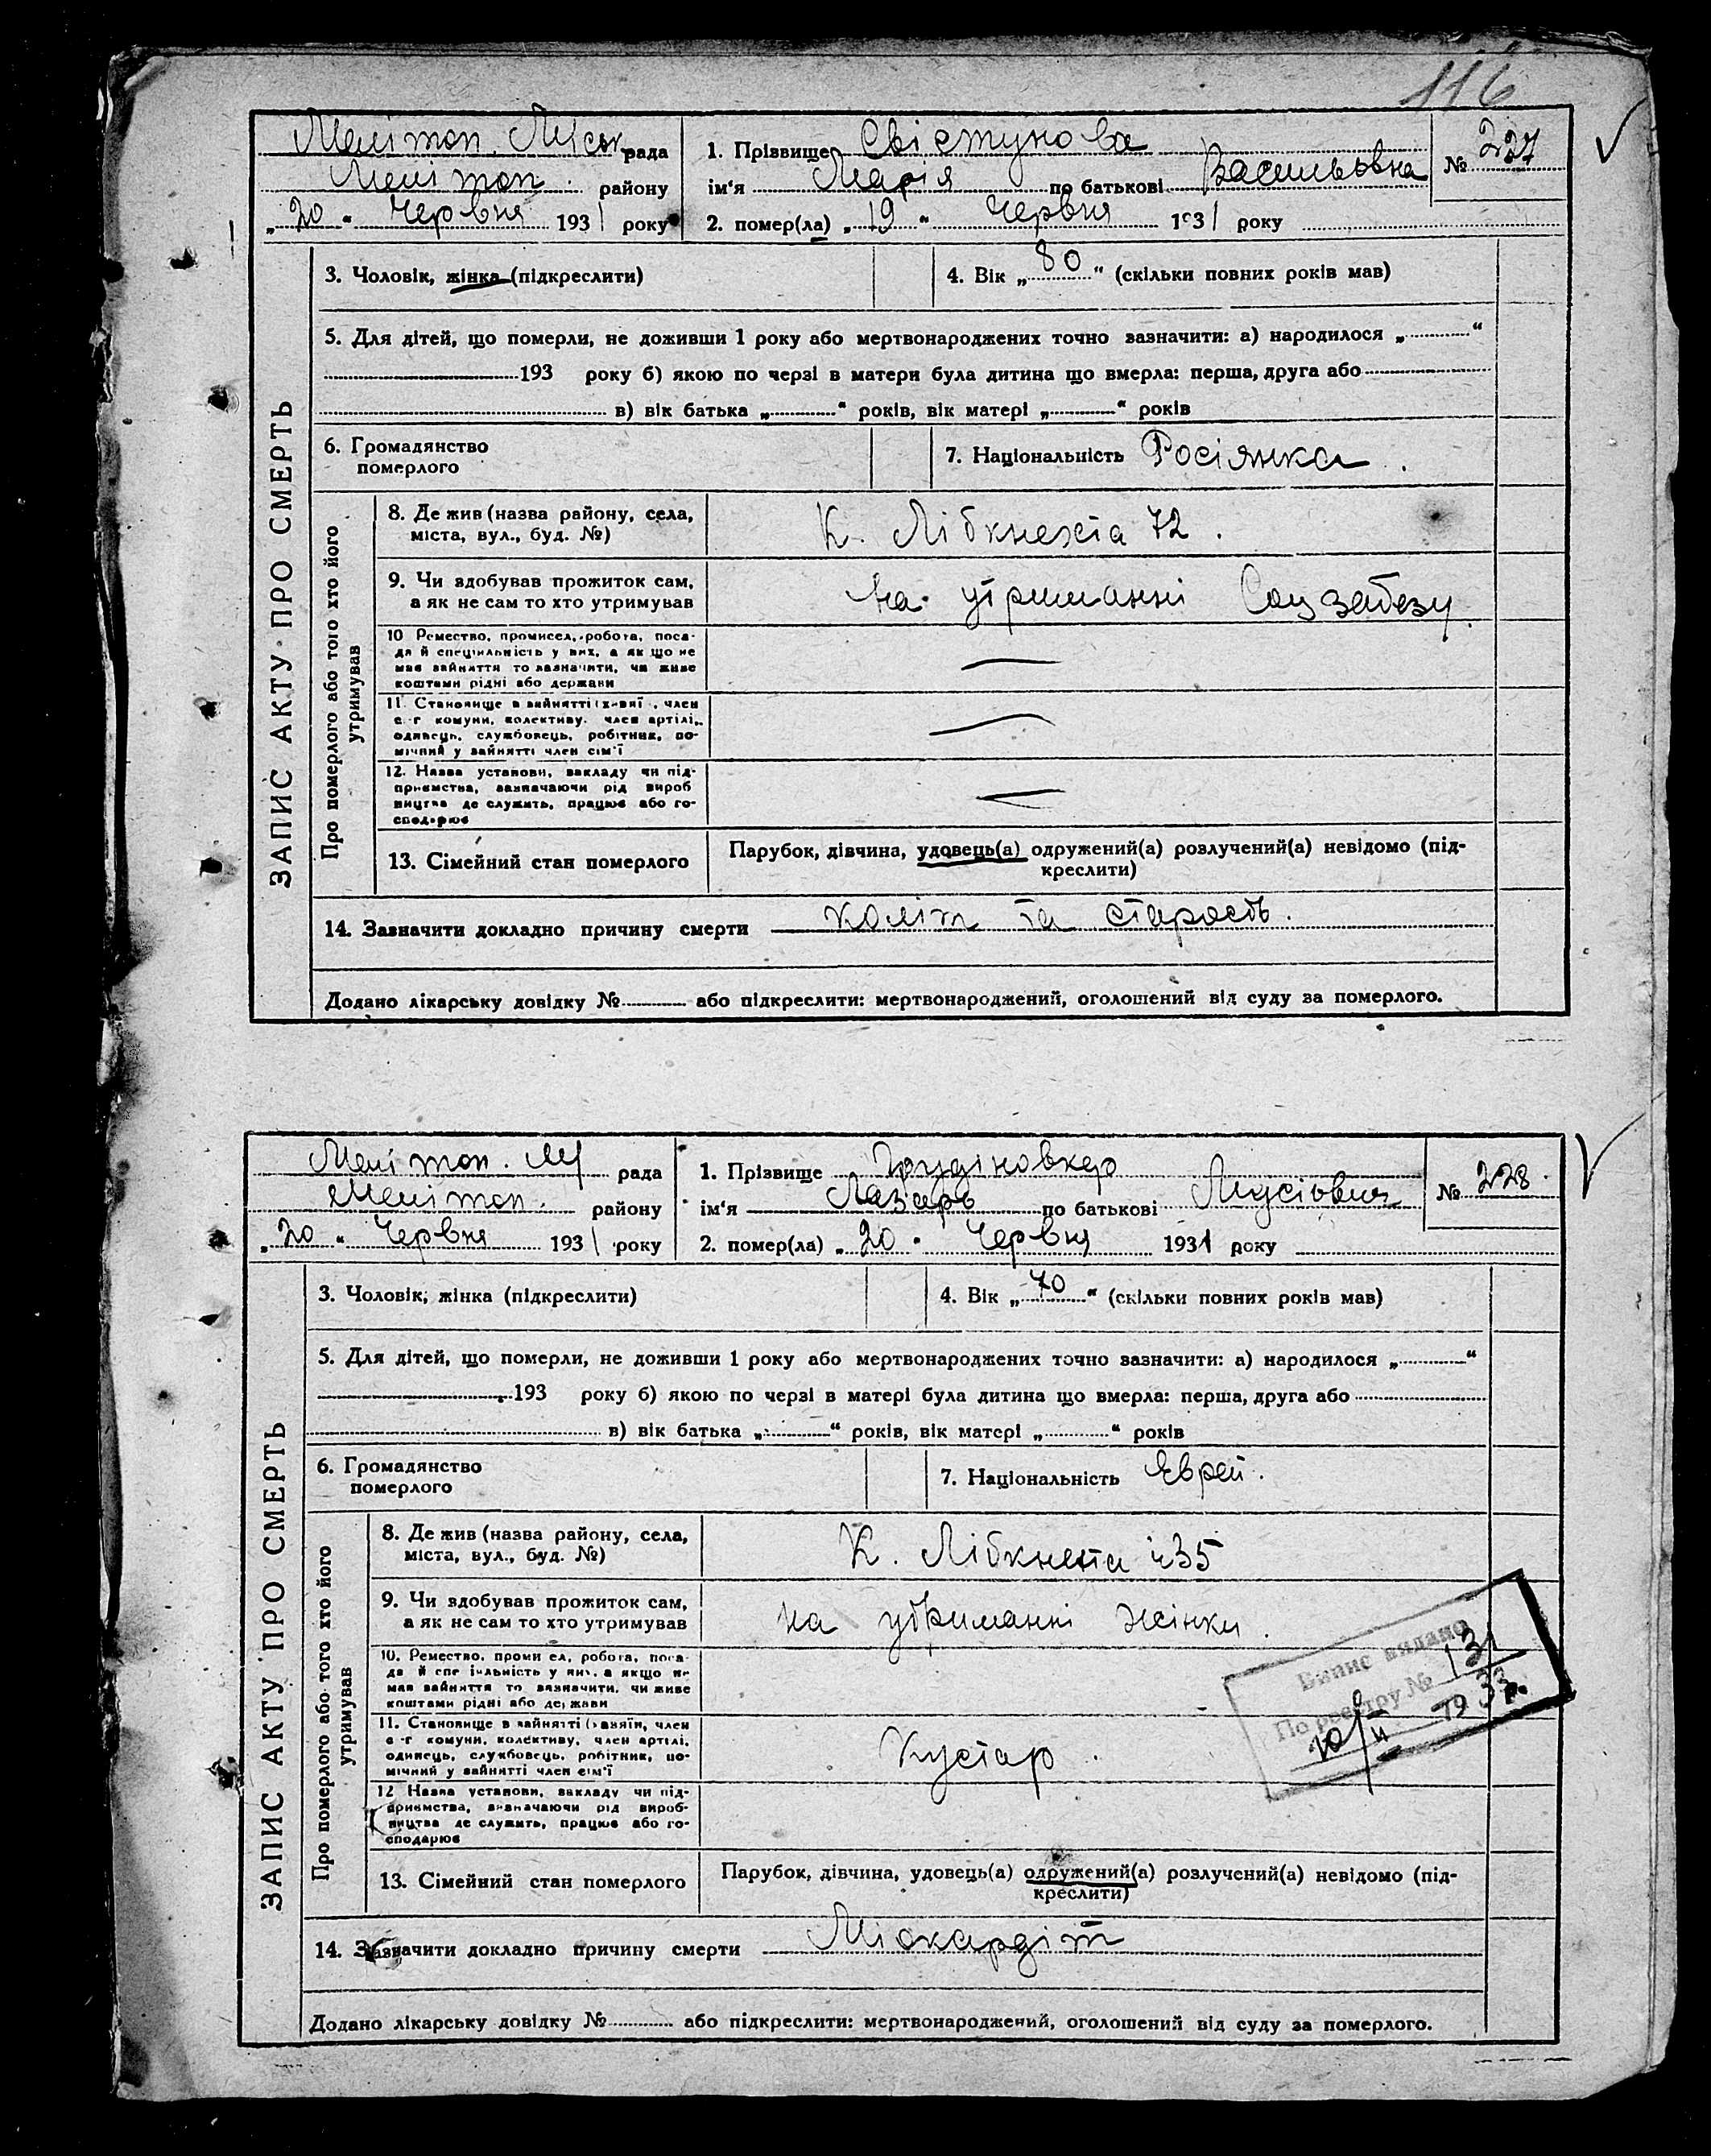 116
Мелітоп. Міськ рада
Мелітоп. району
„20“ Червня 1931 року
1. Прізвище Свістунова
ім'я Марія по батькові Васильовна
№ 227
2. помер(ла) „19“ Червня 1931 року
ЗАПИС АКТУ ПРО СМЕРТЬ
3. Чоловік, жінка (підкреслити)
4. Вік „80“ (скільки повних років мав)
5. Для дітей, що померли, не доживши 1 року або мертвонароджених точно зазначити: а) народилося „ “
193 року б) якою по черзі в матери була дитина що вмерла: перша, друга або
в) вік батька „ “ років, вік матері „ “ років
6. Громадянство
померлого
7. Національність Росіянка.
Про померлого або того хто його
утримував
8. Де жив (назва району, села,
міста, вул., буд. №)
К. Лібкнехта 72.
9. Чи здобував прожиток сам,
а як не сам то хто утримував
на утриманні Соцзабезу.
10 Ремество, промисел, робота, поса-
да й спеціяльність у них, а як що не
мав зайняття то зазначити, чи живе
коштами рідні або держави
—
11. Становище в зайнятті (хазяї, член
с-г комуни, колективу, член артілі,
одинець, службовець, робітник, по-
мічний у зайнятті член сім'ї
—
12. Назва установи, закладу чи під-
приємства, зазначаючи рід вироб
ництва де служить, працює або го-
сподарює
—
13. Сімейний стан померлого
Парубок, дівчина, удовець(а) одружений(а) розлучений(а) невідомо (під-
креслити)
14. Зазначити докладно причину смерти коліт та старость.
Додано лікарську довідку № або підкреслити: мертвонароджений, оголошений від суду за померлого.
Мелітоп. М рада
Мелітоп. району
„20“ Червня 1931 року
1. Прізвище
ім'я Лазарь по батькові Мусіович
№ 228.
2. помер(ла) „20“ Червня 1931 року
ЗАПИС АКТУ ПРО СМЕРТЬ
3. Чоловік, жінка (підкреслити)
4. Вік „70“ (скільки повних років мав)
5. Для дітей, що померли, не доживши 1 року або мертвонароджених точно зазначити: а) народилося „ “
193 року б) якою по черзі в матері була дитина що вмерла: перша, друга або
в) вік батька „ “ років, вік матері „ “ років
6. Громадянство
померлого
7. Національність Єврей.
Про померлого або того хто його
утримував
8. Де жив (назва району, села,
міста, вул., буд. №)
К. Лібкнехта 35
9. Чи здобував прожиток сам,
а як не сам то хто утримував
на утриманні жінки.
10. Ремество, промисел, робота, поса-
да й спеціяльність у них, а якщо не
мав зайняття то зазначити, чи живе
коштами рідні або держави
Випис видано
По реєстру № 131
10/II 1933 р.
11. Становище в зайнятті (хазяїн, член
с-г комуни, колективу, член артілі,
одинець, службовець, робітник, по-
мічний у зайнятті член сім'ї
Кустар.
12 Назва установи, закладу чи під-
приємства, зазначаючи рід вироб-
ництва де служить, працює або го-
сподарює
13. Сімейний стан померлого
Парубок, дівчина, удовець(а) одружений(а) розлучений(а) невідомо (під-
креслити)
14. Зазначити докладно причину смерти Міокардіт
Додано лікарську довідку № або підкреслити: мертвонароджений, оголошений від суду за померлого.